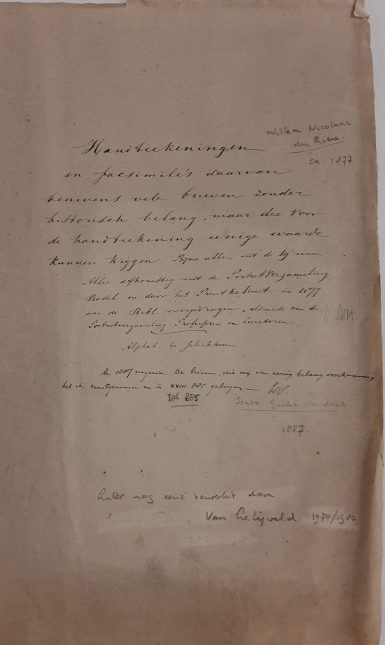 Willem Nicolaas
du Rieu
ca. 1877
Handteekeningen
en facsimile's daarvan
benevens vele brieven zonder
historisch belang, maar die voor
de handteekening eenige waarde
kunnen krijgen. Bijna allen uit de 19e eeuw.
Alles afkomstig uit de Portret Verzameling
Bodel en door het Prentkabinet in 1877
aan de Bibl. overgedragen, alsmede van de
Portretverzameling Professoren en Curatoren.
Alphab. te schikken
In 1887 de brieven, die mij van eenig belang voorkwamen,
het uitgenomen en in XVIII 885 gelegen
Bpl 885
1887.
Later nog eens bewerkt door
Van Lelyveld. 1970/1980